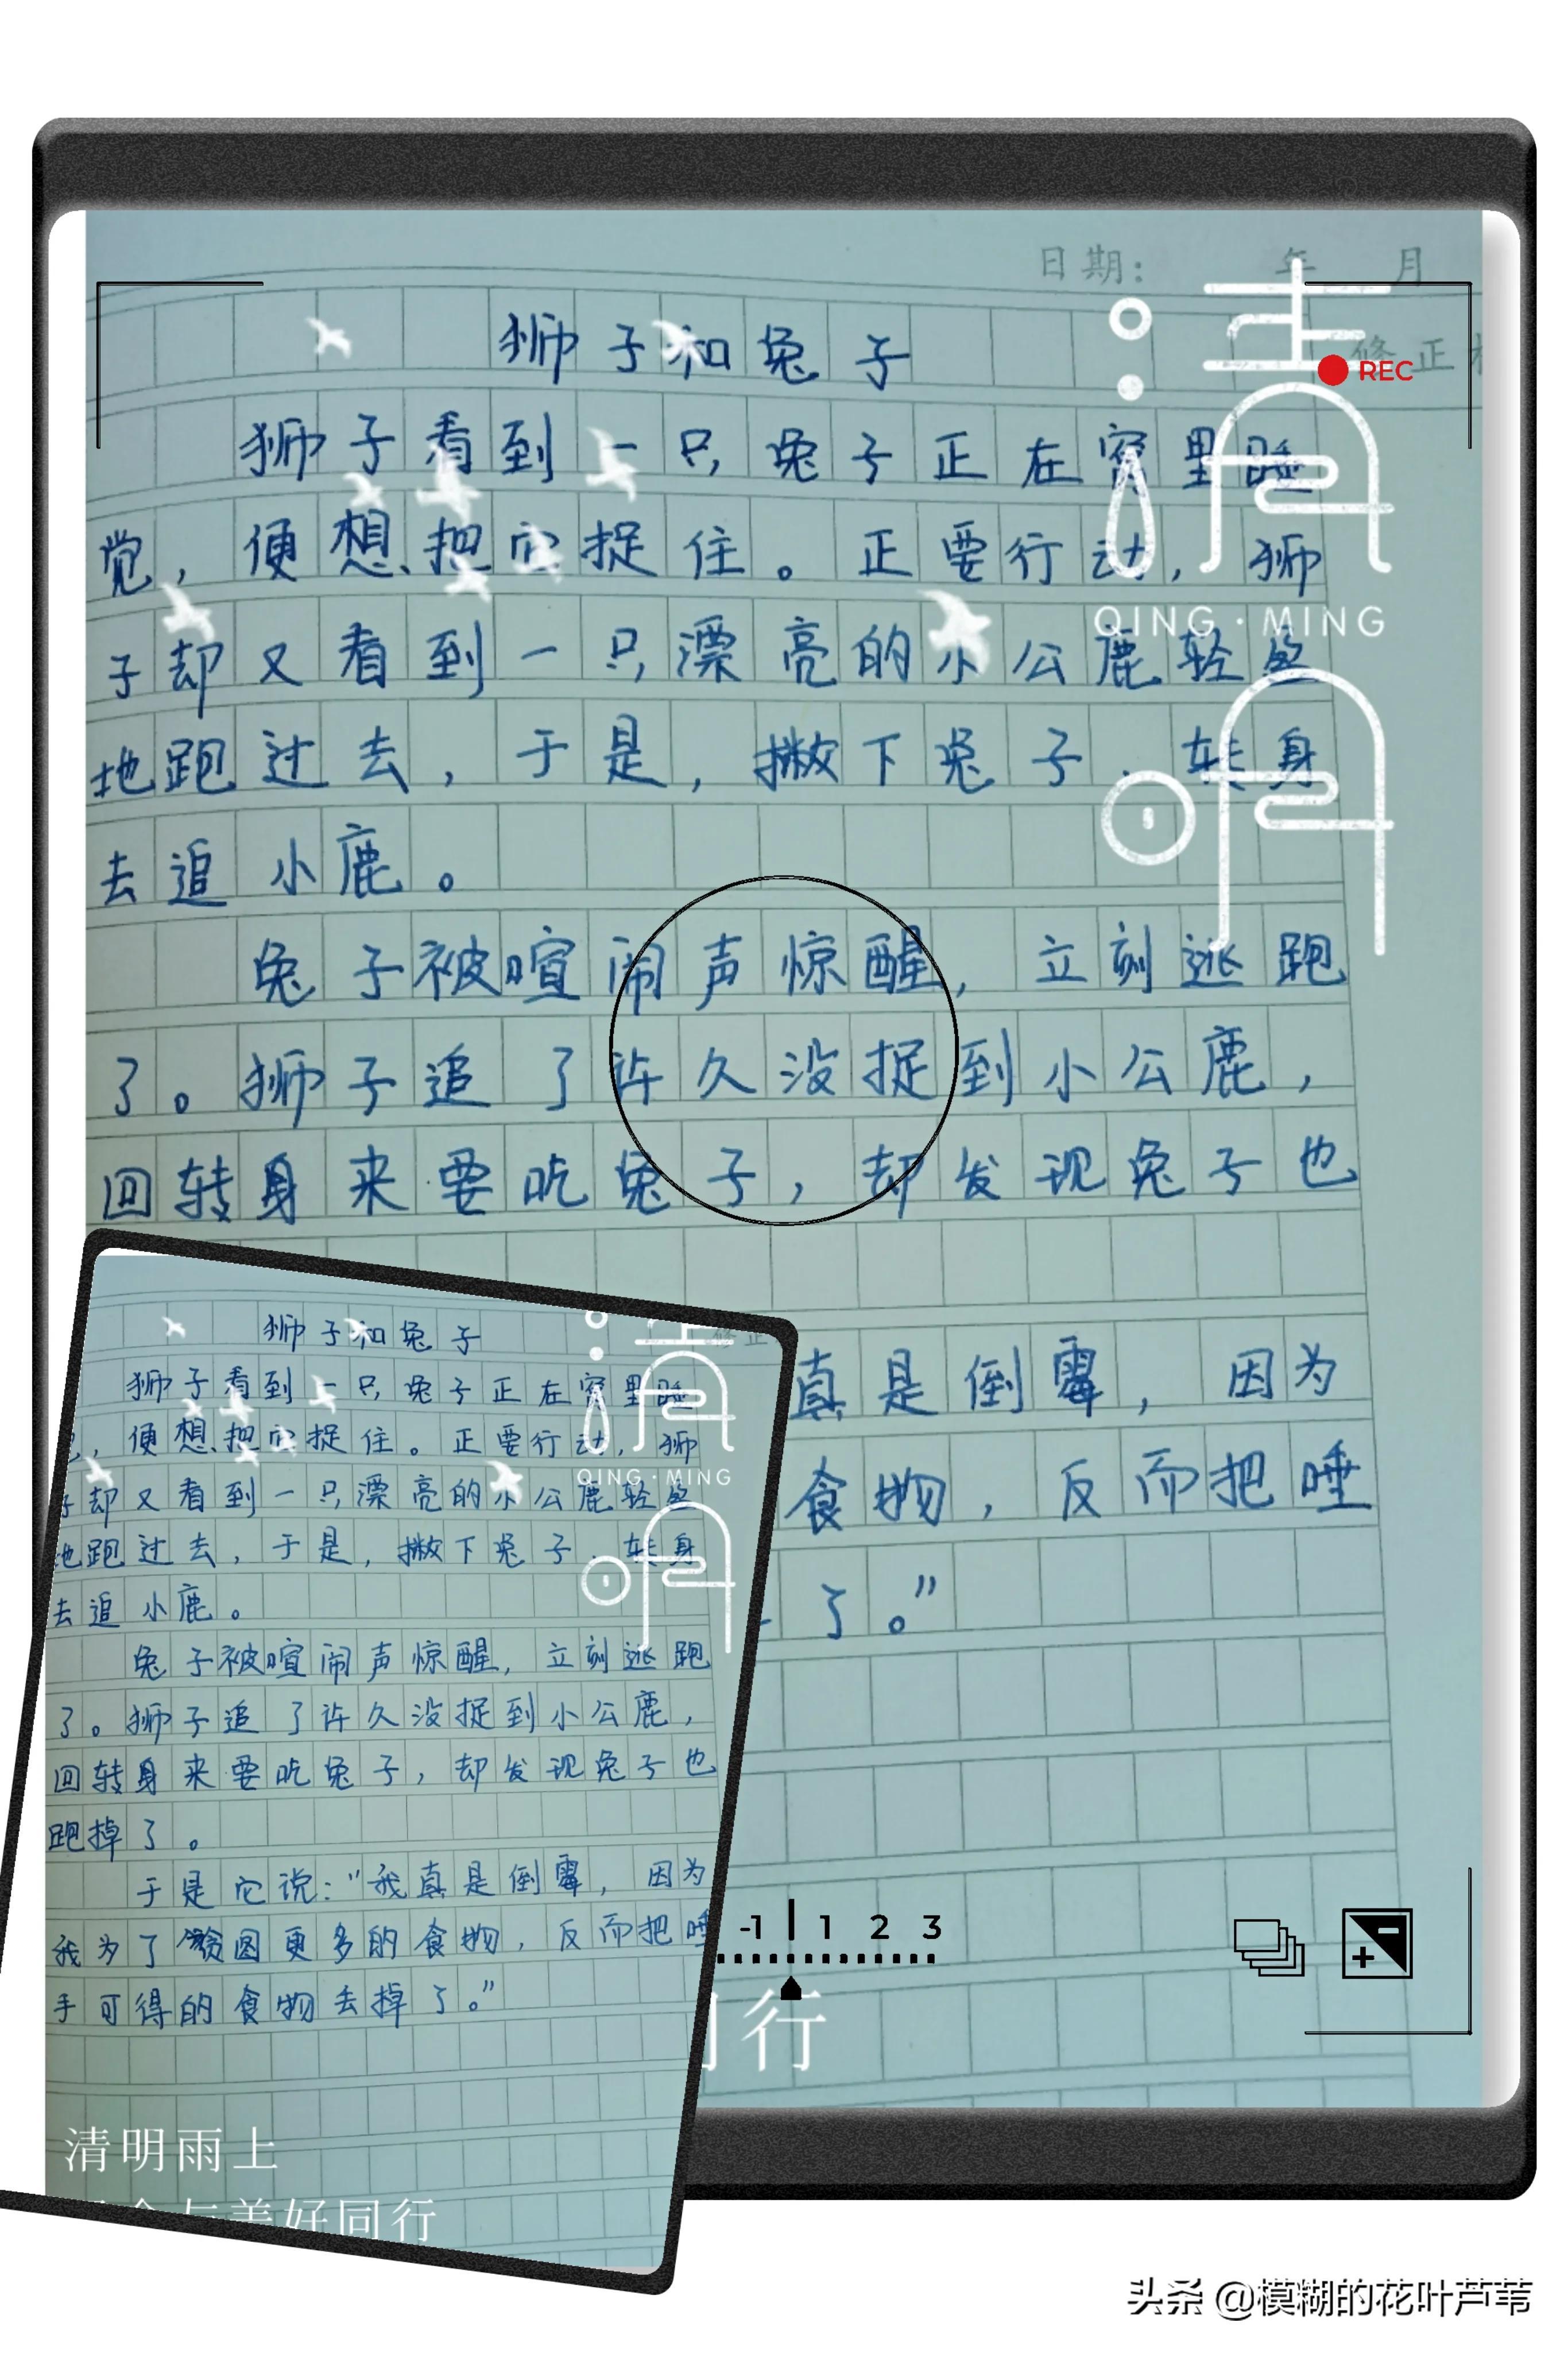 日期： 年 月
修正
REC
清
QING·MING
明
狮子和兔子
狮子看到一只兔子正在窝里睡
觉，便想把它捉住。正要行动，狮
子却又看到一只漂亮的小公鹿轻盈
地跑过去，于是，撇下兔子，转身
去追小鹿。
兔子被喧闹声惊醒，立刻逃跑
了。狮子追了许久没捉到小公鹿，
回转身来要吃兔子，却发现兔子也
真是倒霉，因为
食物，反而把唾
了。”
狮子和兔子
修正
清
狮子看到一只兔子正在窝里睡
，便想把它捉住。正要行动，狮
QING·MING
子却又看到一只漂亮的小公鹿轻盈
明
地跑过去，于是，撇下兔子，转身
去追小鹿。
兔子被喧闹声惊醒，立刻逃跑
了。狮子追了许久没捉到小公鹿，
回转身来要吃兔子，却发现兔子也
跑掉了。
于是它说：“我真是倒霉，因为
我为了贪图更多的食物，反而把唾
手可得的食物丢掉了。”
-1 1 2 3
同行
清明雨上
与美好同行
头条 @模糊的花叶芦苇